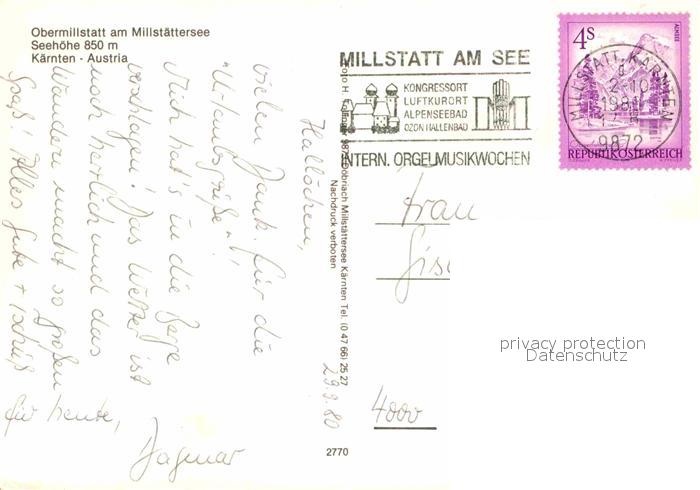 Obermillstatt am Millstättersee
Seehöhe 850 m
Kärnten - Austria
MILLSTATT AM SEE
KONGRESSORT
LUFTKURORT
ALPENSEEBAD
OZON HALLENBAD
INTERN. ORGELMUSIKWOCHEN
4S
ALMSEE
REPUBLIK ÖSTERREICH
MILLSTATT, KÄRNTEN
9872
29.9.80
Hallöchen,
vielen Dank für die
"Urlaubsgrüße"!
Mich hat's in die Berge
verschlagen! Das Wetter ist
noch herrlich und das
Wandern macht so großen
Spaß! Alles Gute + Tschüß
für heute,
Dagmar
Foto H. 9873 Döbriach Millstättersee Kärnten Tel. (0 47 66) 25 27
Nachdruck verboten
2770
Frau
Gise
4000
privacy protection
Datenschutz